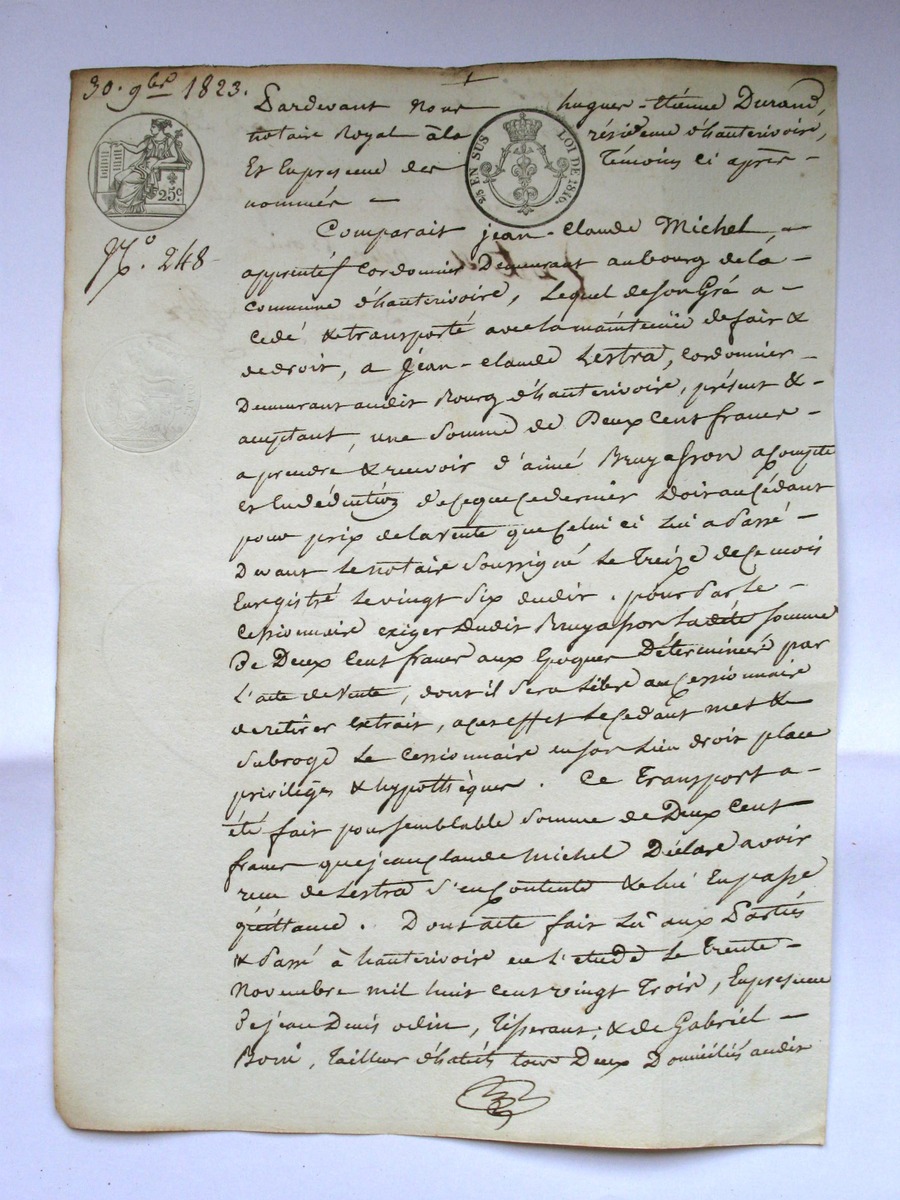 30. 9bre 1823.
Pardevant Nous hugues-Etienne Durand,
notaire Royal à la résidence d'hauterivoire,
Et En presence des témoins ci après -
nommés -
25 EN SUS LOI DE 1816.
25c
N.o 248
Comparait jean-Claude Michel, -
apprentif Cordonnier Demeurant au bourg de la
Commune d'hauterivoire, Lequel de son Gré a -
Cedé & transporté avec la maintenüe de fait &
de droit, a jean-Claude Lestra, Cordonnier -
Demeurant audit Bourg d'hauterivoire, présent & -
acceptant, une Somme de Deux Cent francs -
a prendre & recevoir d'aimé Bruyasson acompte
et En déduction de ce que Ce dernier doit au Cédant
pour prix de la vente que Celui ci Lui a Passé -
Devant Le notaire Soussigné Le Treize de Ce mois
Enregistré Le vingt Six dudit. pour Par Le -
Cessionnaire exiger dudit Bruyasson La dite Somme
De Deux Cent francs aux Epoques Déterminées par
L'acte de Vente, dont il Sera Libre au Cessionnaire
de retirer extrait, a Cet effet Le Cedant met &
Subroge Le Cessionnaire en son Lieu droit place
privilèges & hypothèques. Ce Transport a -
été fait pour Semblable Somme de Deux Cent
francs que jean Claude Michel Déclare avoir
reçu de Lestra S'en Contente & lui En passe
quittance. Dont acte fait Lû aux Parties
& Passé à hauterivoire en l'etude Le Trente -
Novembre mil huit cent vingt Trois, En presence
De jean Denis odin, Tisserant, & de Gabriel -
Boni, Tailleur d'habits tous Deux Domiciliés audit